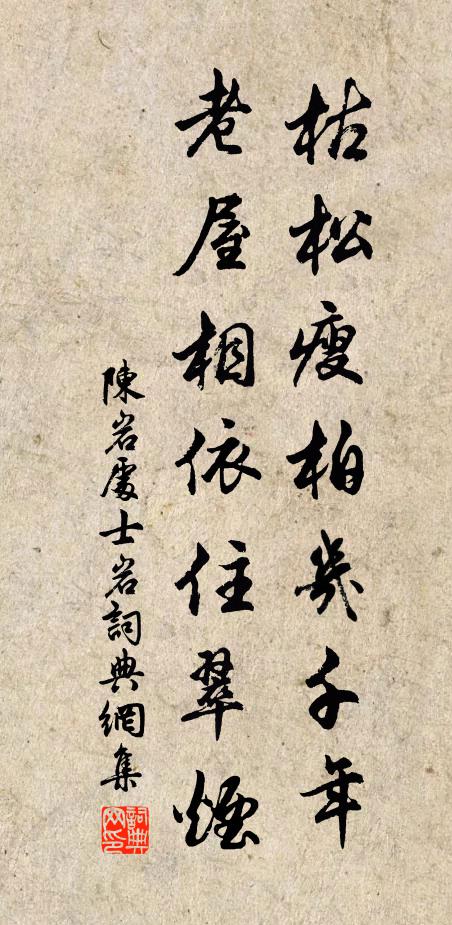 枯松瘦柏幾千年
老屋相依住翠煙
陳岩處士岩詞典網集
詞典網印